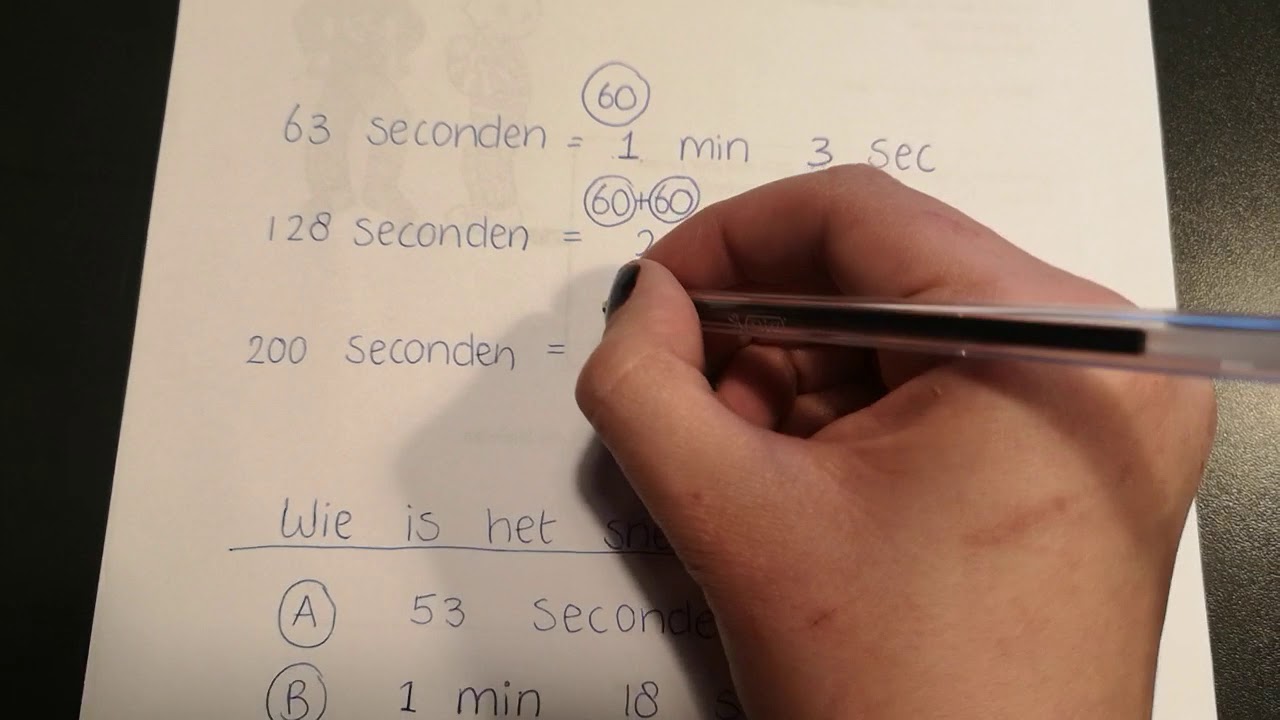 60
63 seconden = 1 min 3 sec
60+60
128 seconden = 2
200 seconden =
Wie is het
A 53
B 1 min 18